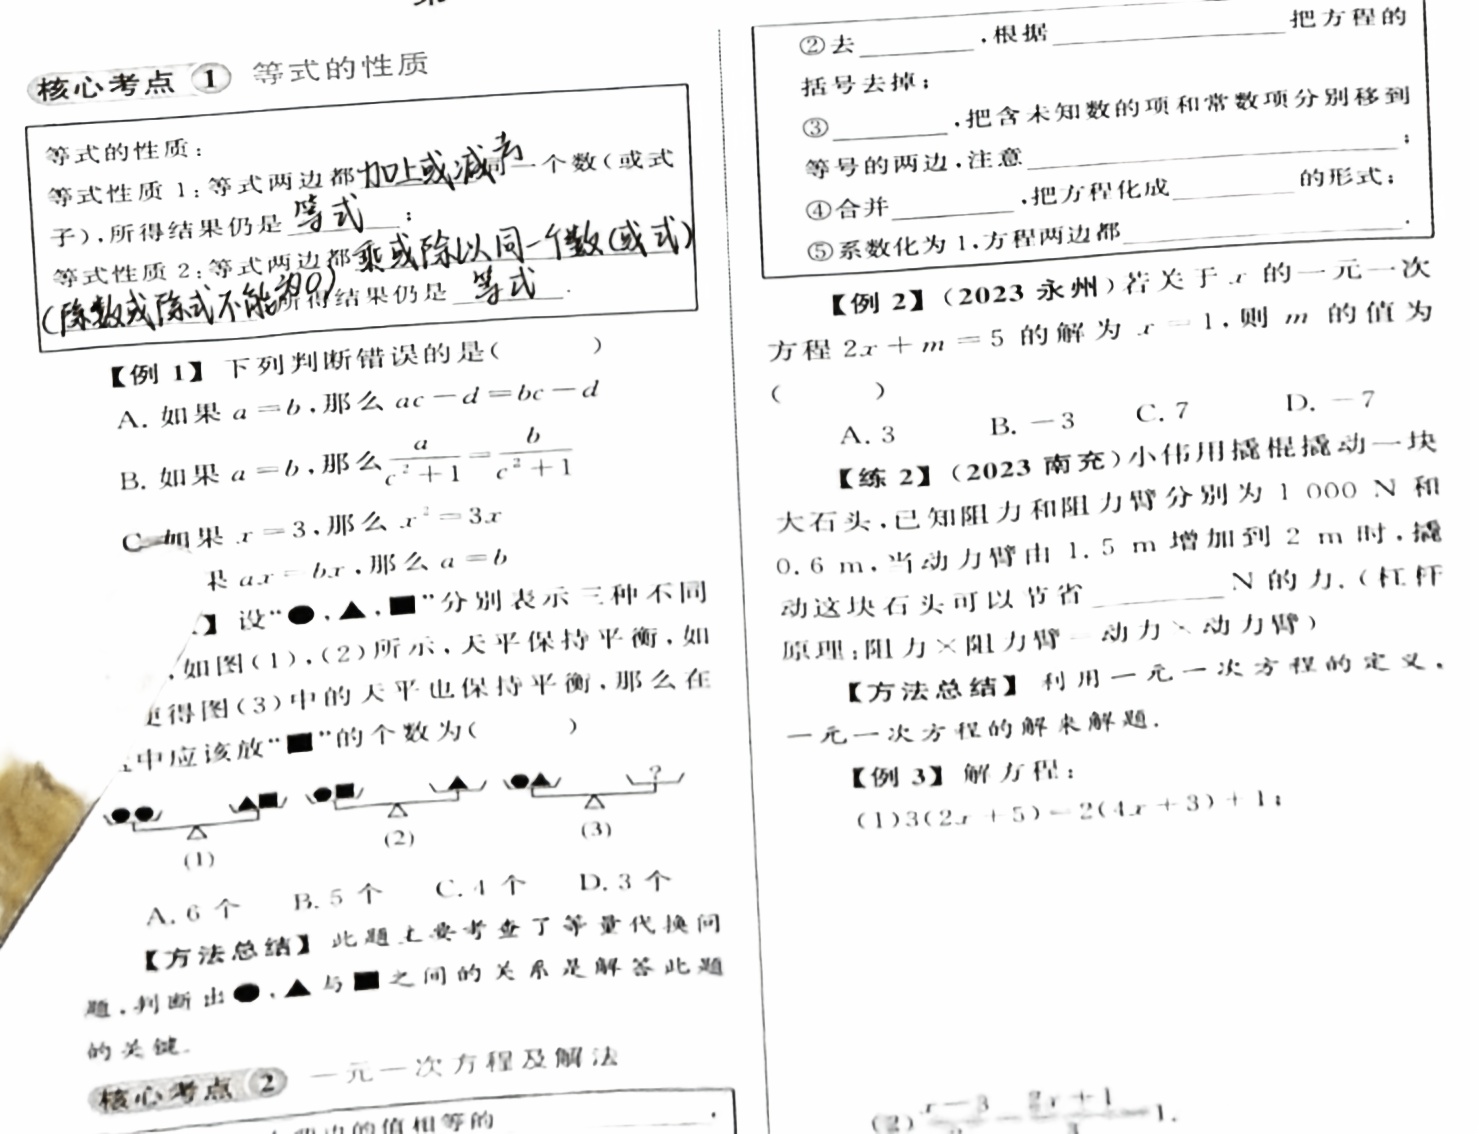 核心考点 1 等式的性质
等式的性质:
等式性质 1:等式两边都加上或减去同一个数(或式
子),所得结果仍是 等式 ;
等式性质 2:等式两边都乘或除以同一个数(或式)
(除数或除式不能为0)所得结果仍是 等式 .
【例 1】 下列判断错误的是(  )
A. 如果 a=b,那么 ac-d=bc-d
B. 如果 a=b,那么 a/(c²+1)=b/(c²+1)
C 如果 x=3,那么 x²=3x
ax=bx,那么 a=b
】 设“●,▲,■”分别表示三种不同
,如图(1),(2)所示,天平保持平衡,如
得图(3)中的天平也保持平衡,那么在
中应该放“■”的个数为(  )
?
(1) (2) (3)
A. 6 个 B. 5 个 C. 4 个 D. 3 个
【方法总结】 此题主要考查了等量代换问
题,判断出●,▲与■之间的关系是解答此题
的关键.
核心考点 2 一元一次方程及解法
的值相等的 .
②去________,根据________________把方程的
括号去掉;
③________,把含未知数的项和常数项分别移到
等号的两边,注意________________________;
④合并________,把方程化成________的形式;
⑤系数化为 1,方程两边都________________.
【例 2】(2023 永州)若关于 x 的一元一次
方程 2x+m=5 的解为 x=1,则 m 的值为
(  )
A. 3 B. -3 C. 7 D. -7
【练 2】(2023 南充)小伟用撬棍撬动一块
大石头,已知阻力和阻力臂分别为 1 000 N 和
0.6 m,当动力臂由 1.5 m 增加到 2 m 时,撬
动这块石头可以节省________N 的力.(杠杆
原理:阻力×阻力臂=动力×动力臂)
【方法总结】 利用一元一次方程的定义、
一元一次方程的解来解题.
【例 3】 解方程:
(1)3(2x+5)=2(4x+3)+1;
(2)